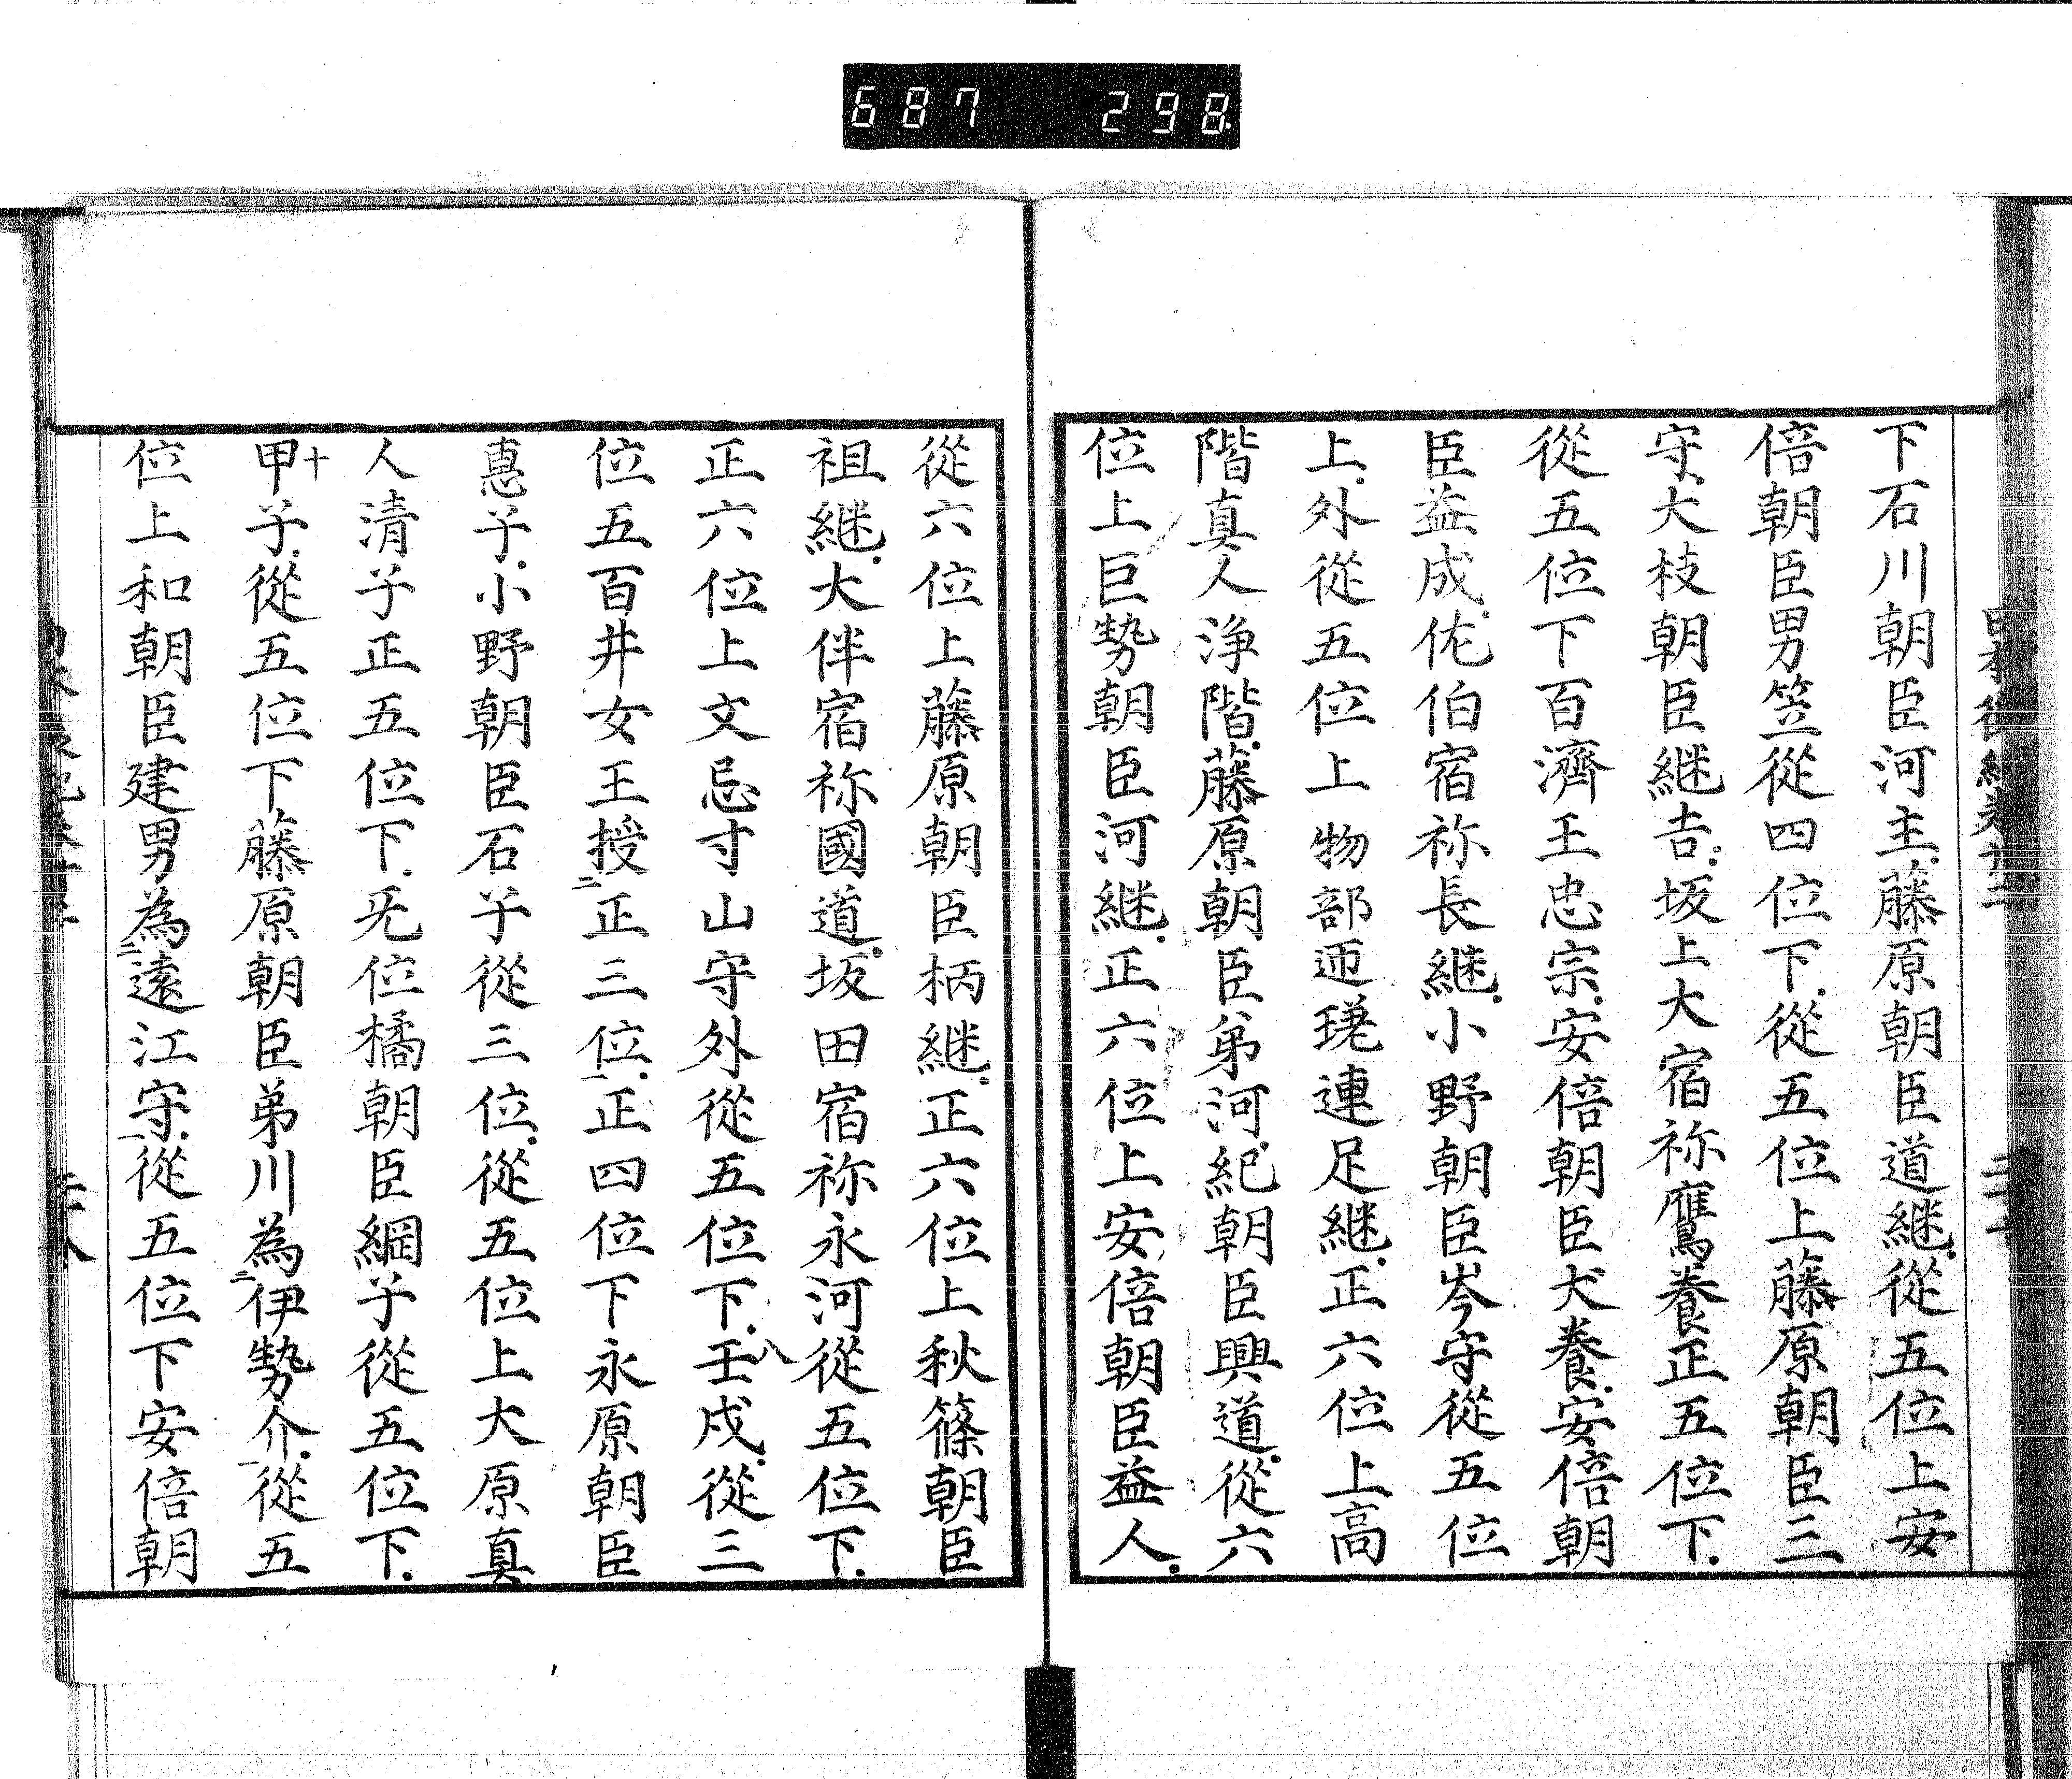 687 298
下石川朝臣河主藤原朝臣道継從五位上安
倍朝臣男笠從四位下從五位上藤原朝臣三
守大枝朝臣継吉坂上大宿祢鷹養正五位下
從五位下百濟王忠宗安倍朝臣犬養安倍朝
臣益成佐伯宿祢長継小野朝臣岑守從五位
上外從五位上物部匝瑳連足継正六位上高
階真人浄階藤原朝臣弟河紀朝臣興道從六
位上巨勢朝臣河継正六位上安倍朝臣益人
從六位上藤原朝臣柄継正六位上秋篠朝臣
祖継大伴宿祢國道坂田宿祢永河從五位下
正六位上文忌寸山守外從五位下壬戌八從三
位五百井女王授二正三位一正四位下永原朝臣
惠子小野朝臣石子從三位從五位上大原真
人清子正五位下无位橘朝臣綱子從五位下
甲子十從五位下藤原朝臣弟川為二伊勢介一從五
位上和朝臣建男為二遠江守一從五位下安倍朝